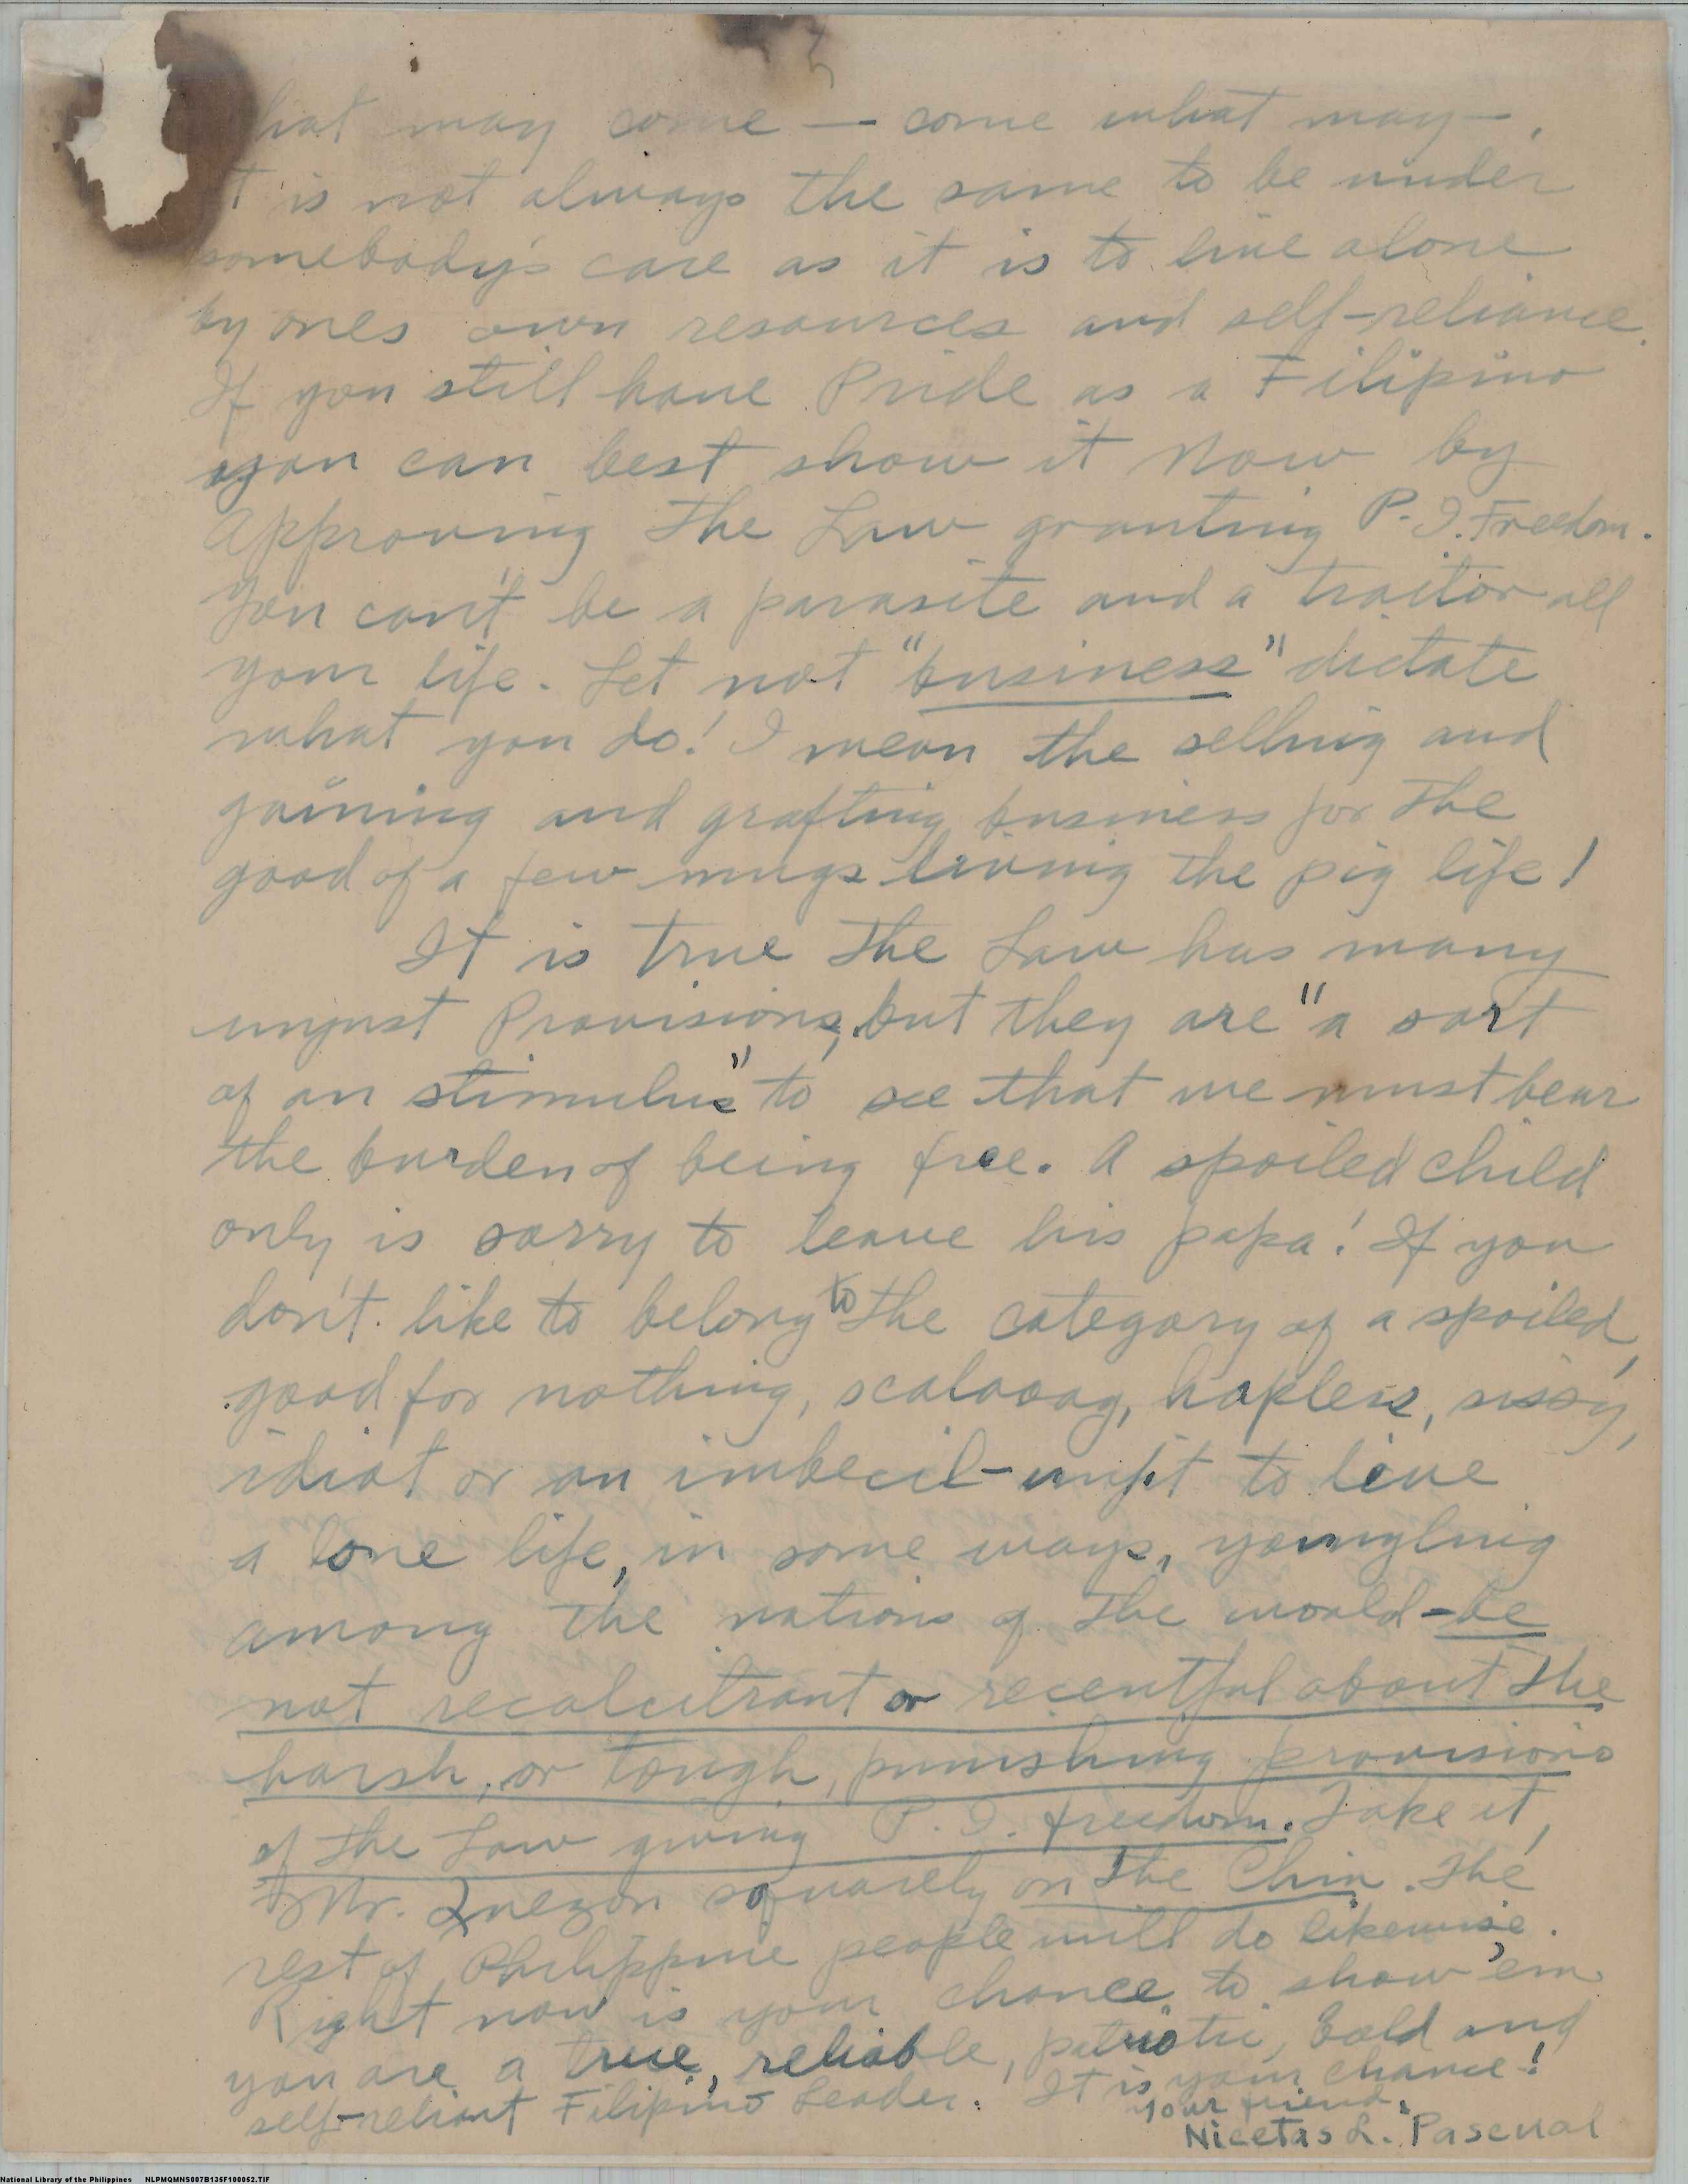 hat may come — come what may—.
t is not always the same to be under
somebody's care as it is to live alone
by ones own resources and self-reliance.
If you still have Pride as a Filipino
you can best show it now by
Approving the Law granting P. I. Freedom.
You can't be a parasite and a traitor all
your life. Let not "business" dictate
what you do! I mean the selling and
gaining and grafting business for the
good of a few mugs living the pig life!
It is true the Law has many
unjust Provisions, but they are "a sort
of an stimulus" to see that we must bear
the burden of being free. A spoiled child
only is sorry to leave his papa! If you
don't like to belong to the category of a spoiled,
good for nothing, scalawag, hapless, sissy,
idiot or an imbecil-unfit to live
a lone life, in some ways, youngling
among the nations of the world-be
not recalcitrant or recentful about the
harsh, or tough, punishing provisions
of the Law giving P. I. freedom. Take it,
Mr. Quezon squarely on the Chin. The
rest of Philippine people will do likewise.
Right now is your chance to show 'em
you are a true, reliable, patriotic, bold and
self-reliant Filipino Leader. It is your chance!
Your friend,
Nicetas L. Pascual
National Library of the Philippines NLPMQMNS007B135F100052.TIF